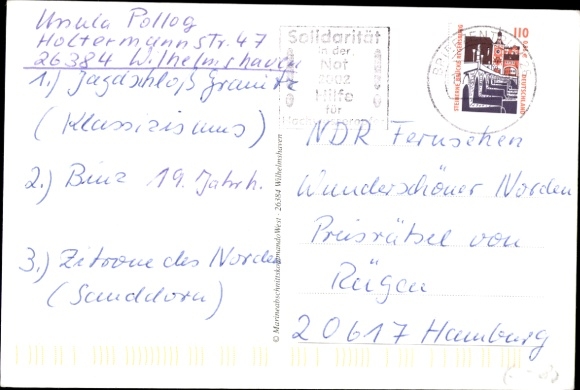 Ursula Pollog
Holtermannstr. 47
26384 Wilhelmshaven
1.) Jagdschloß Granitz
(Klassizismus)
2.) Binz 19. Jahrh.
3.) Zitrone des Norden
(Sanddorn)
Solidarität
in der
Not
2002
Hilfe
für
BRIEFZENTRUM
STEINERNE BRÜCKE REGENSBURG
110
DEUTSCHLAND
© Marineabschnittskommando West · 26384 Wilhelmshaven
NDR Fernsehen
Wunderschöner Norden
Preisrätsel von
Rügen
20617 Hamburg